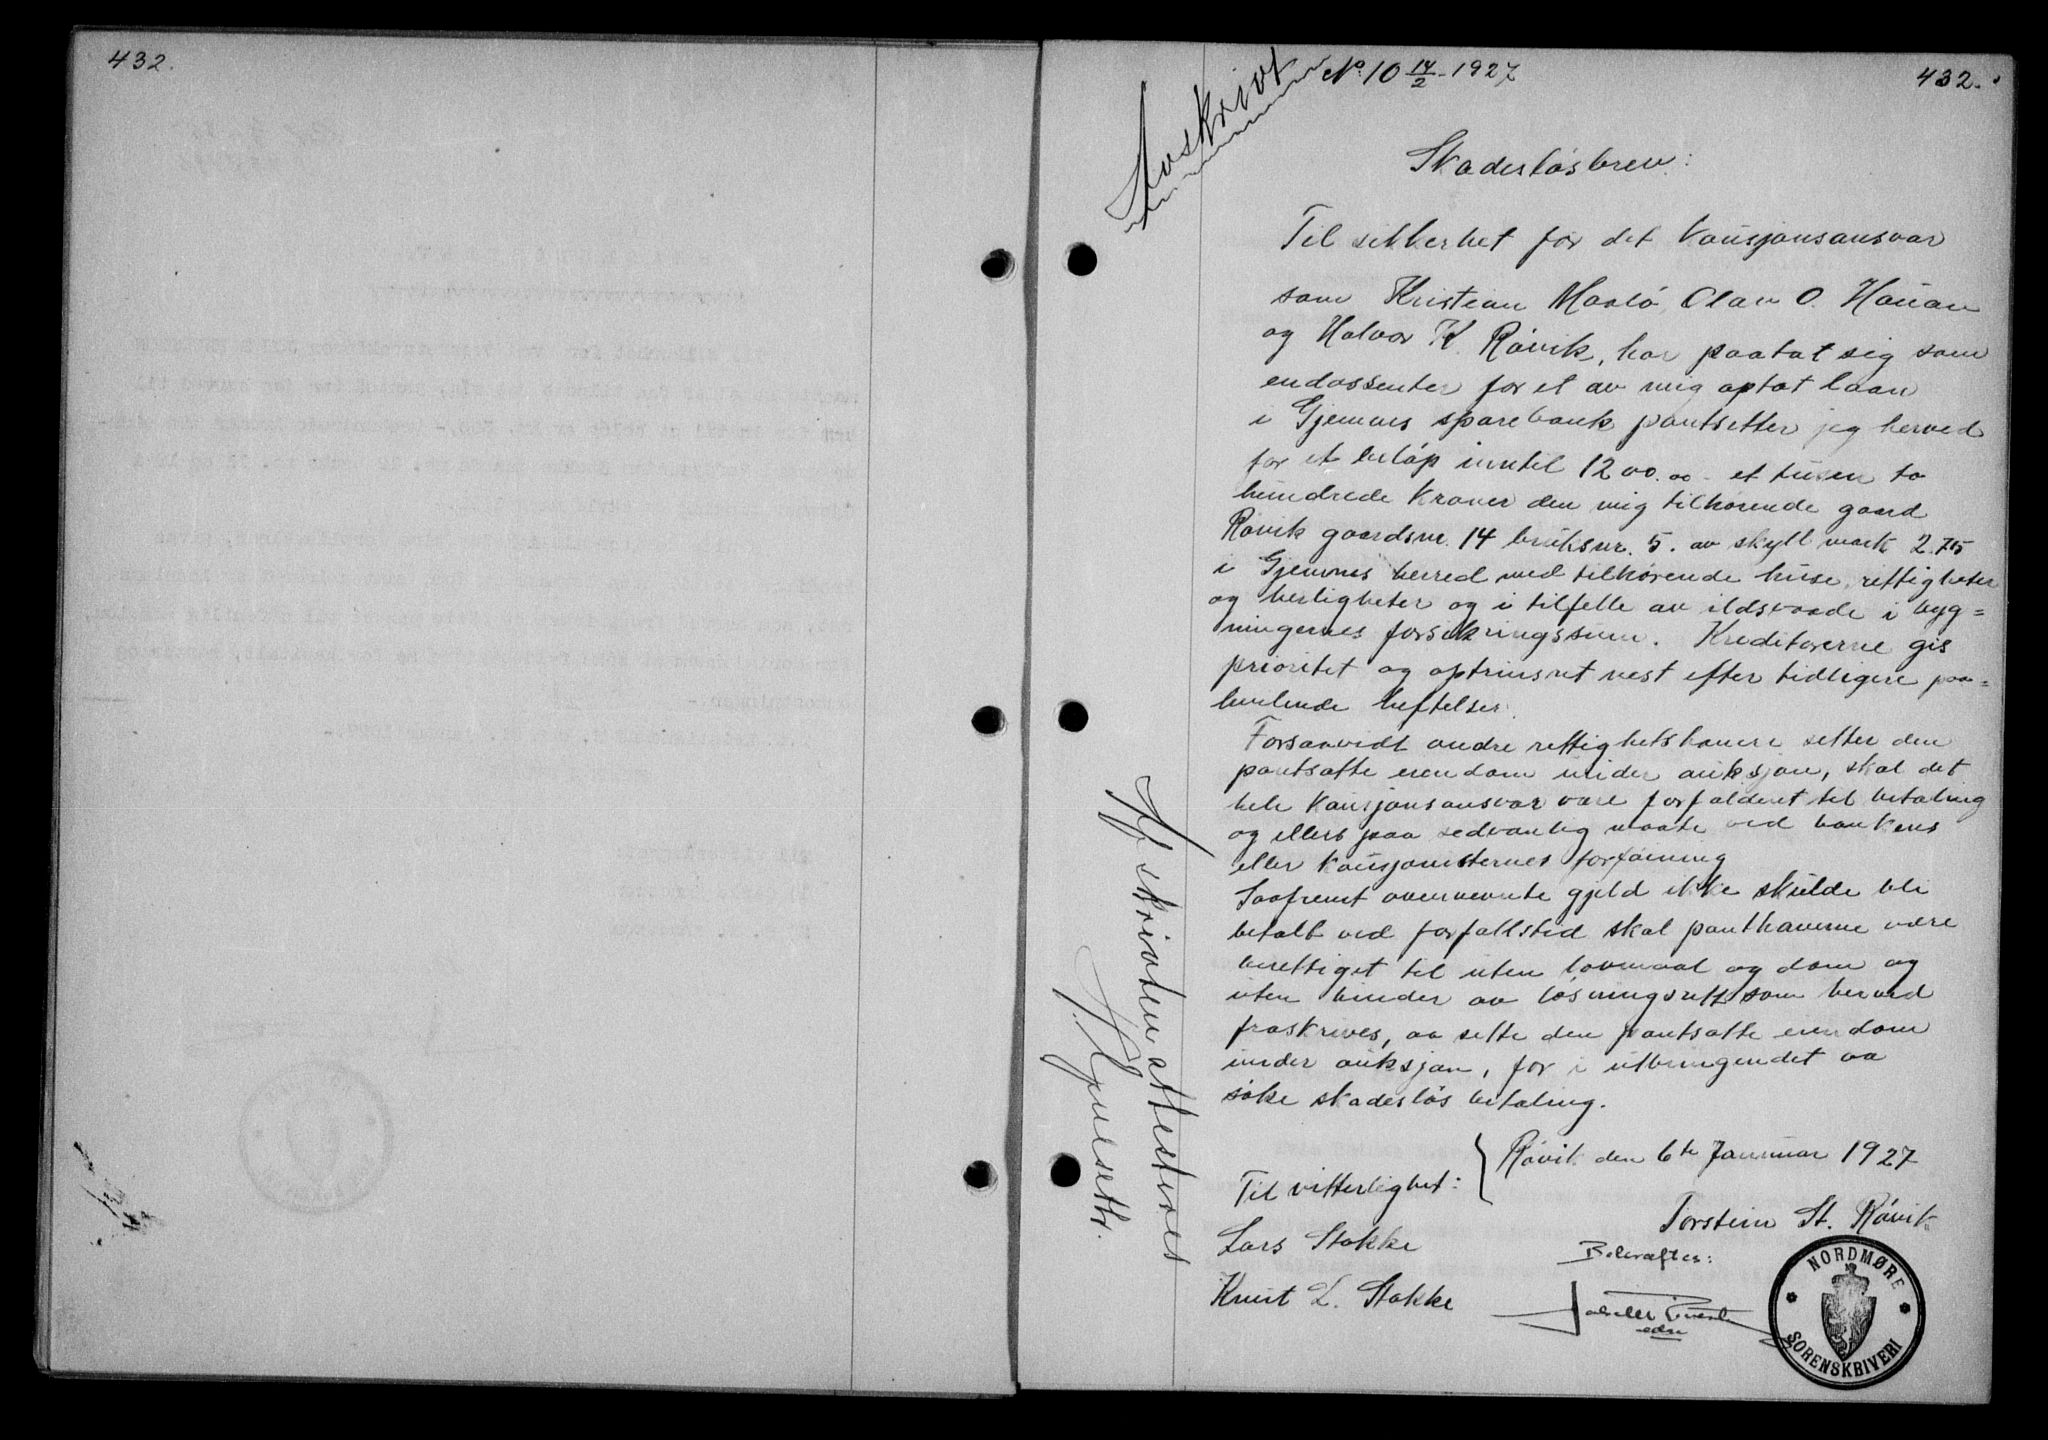 432.
No. 10 14/2 - 1927
432.
Avskrivt
Skadesløsbrev:
Til sikkerhet for det kausjonsansvar
som Kristian Maalø, Olav O. Hauan
og Halvor K. Røvik, har paatat sig som
endossenter for et av mig optat laan
i Gjemnes sparebank pantsetter jeg herved
for et beløp inntil 1200.00 - et tusen to
hundrede kroner den mig tilhørende gaard
Røvik gaardsnr. 14 bruksnr. 5. av skyld mark 2.75
i Gjemnes herred med tilhørende huse, rettigheter
og herligheter og i tilfelle av ildsvaade i byg=
ningernes forsikringssum. Kreditorerne gis
prioritet og optrinsret nest efter tidligere paa=
hevilende heftelser.
Forsaavidt andre rettighetshavere setter den
pantsatte eiendom under auksjon, skal det
hele kausjonsansvar være forfaldent til betaling
og ellers paa sedvanlig maate ved bankens
eller kausjonisternes forføining
Saafremt ovennevnte gjeld ikke skulde bli
betalt ved forfallstid skal panthaverne være
berettiget til uten lovmaal og dom og
uten hinder av løsningsrett som herved
fraskrives, aa sette den pantsatte eiendom
under auksjon, for i utbringendet aa
søke skadesløs betaling.
Røvik den 6te Januar 1927
Til vitterlighet:
Torstein St. Røvik
Lars Stokke
Bekræftes:
Knut L. Stokke
edsv
NORDMØRE
SORENSKRIVERI
Afskriften attesteres